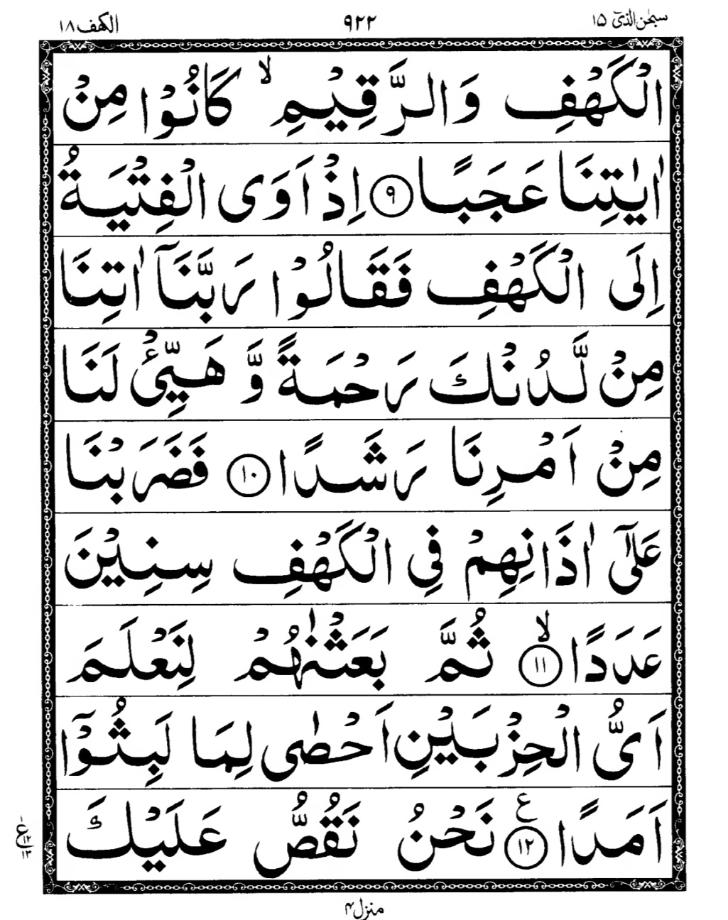 سبحٰن الذیٓ ۱۵ ۹۲۲ الکهف ۱۸
الْكَهْفِ وَالرَّقِيْمِ ۙ كَانُوْا مِنْ
اٰيٰتِنَا عَجَبًا ۹ اِذْ اَوَى الْفِتْيَةُ
اِلَى الْكَهْفِ فَقَالُوْا رَبَّنَآ اٰتِنَا
مِنْ لَّدُنْكَ رَحْمَةً وَّ هَيِّئْ لَنَا
مِنْ اَمْرِنَا رَشَدًا ۱۰ فَضَرَبْنَا
عَلٰٓى اٰذَانِهِمْ فِى الْكَهْفِ سِنِيْنَ
عَدَدًا ۙ ۱۱ ثُمَّ بَعَثْنٰهُمْ لِنَعْلَمَ
اَىُّ الْحِزْبَيْنِ اَحْصٰى لِمَا لَبِثُوْٓا
اَمَدًا ۱۲ ع نَحْنُ نَقُصُّ عَلَيْكَ
۱ ع ۱۲ ۱۳
منزل ۴